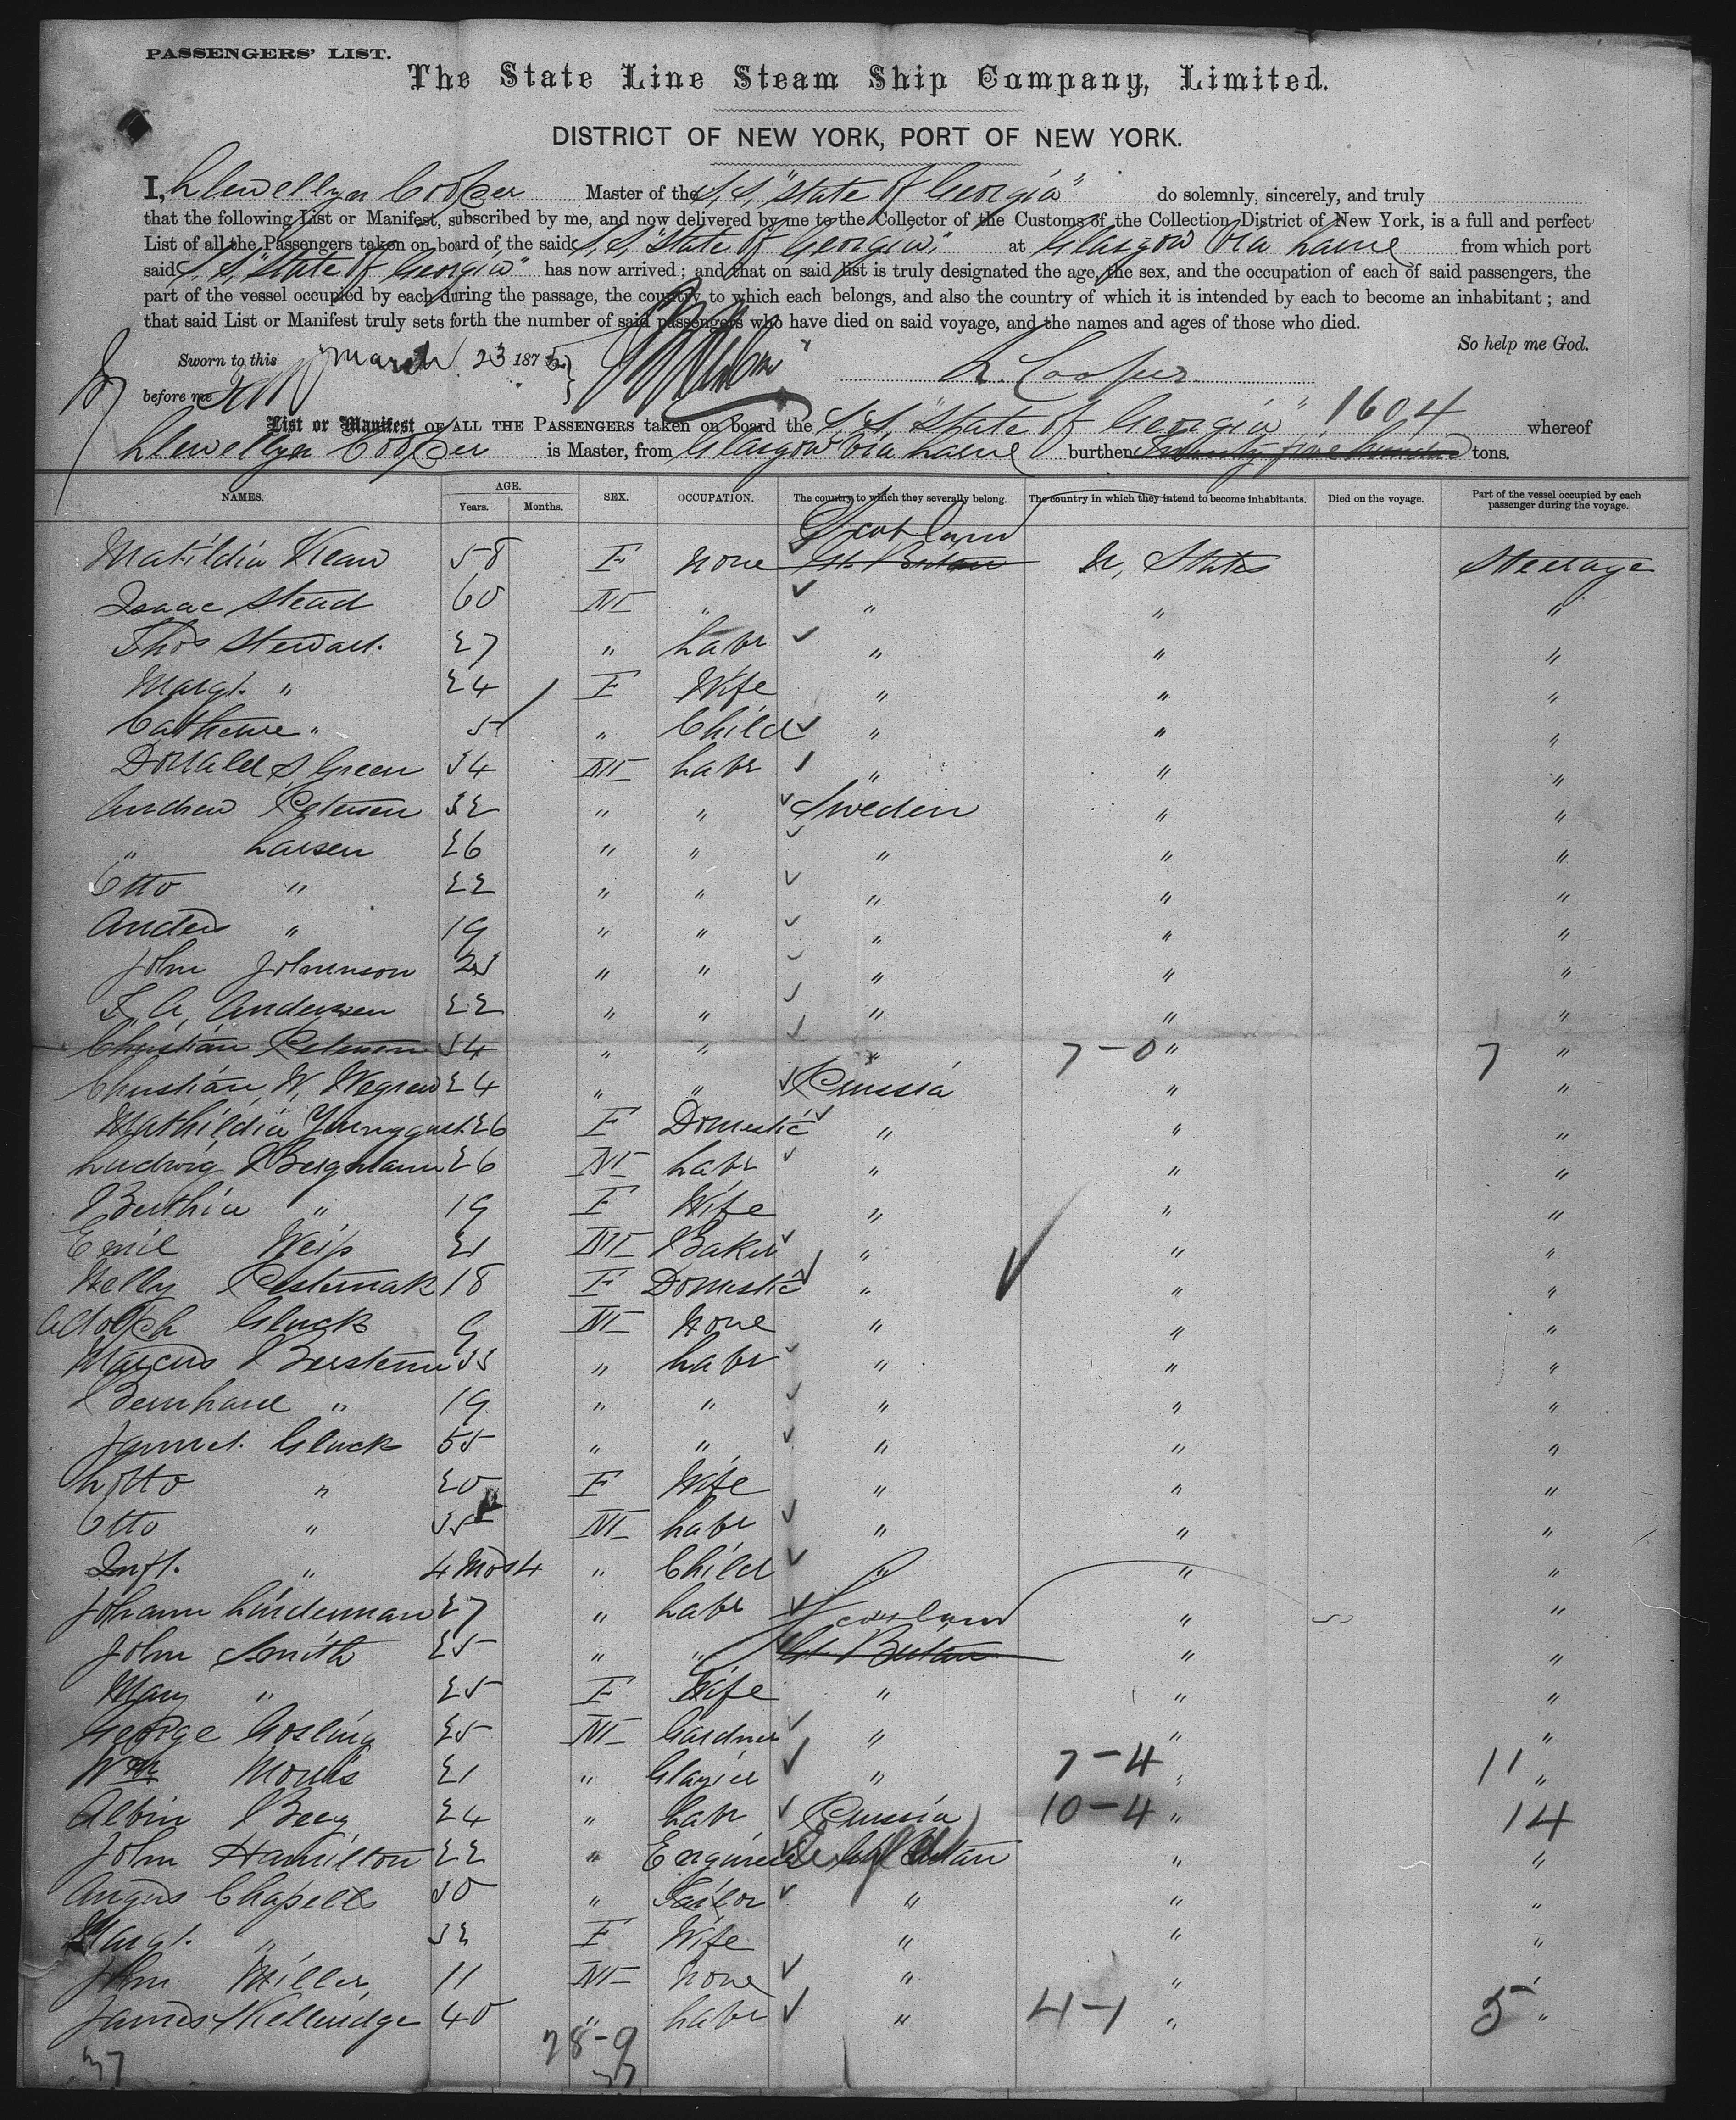 PASSENGERS' LIST.
The State Line Steam Ship Company, Limited.
DISTRICT OF NEW YORK, PORT OF NEW YORK.
I, Llewellyn Cooper Master of the S.S. "State of Georgia" do solemnly, sincerely, and truly
that the following List or Manifest, subscribed by me, and now delivered by me to the Collector of the Customs of the Collection District of New York, is a full and perfect
List of all the Passengers taken on board of the said S.S. "State of Georgia" at Glasgow Via Larne from which port
said S.S. "State of Georgia" has now arrived; and that on said list is truly designated the age, the sex, and the occupation of each of said passengers, the
part of the vessel occupied by each during the passage, the country to which each belongs, and also the country of which it is intended by each to become an inhabitant; and
that said List or Manifest truly sets forth the number of said passengers who have died on said voyage, and the names and ages of those who died.
So help me God.
Sworn to this March 23 1875
before me
L. Cooper
List or Manifest OF ALL THE PASSENGERS taken on board the S.S. "State of Georgia" 1604 whereof
Llewellyn Cooper is Master, from Glasgow Via Larne burthen tons.
NAMES. AGE. Years. Months. SEX. OCCUPATION. The country to which they severally belong. The country in which they intend to become inhabitants. Died on the voyage. Part of the vessel occupied by each passenger during the voyage.
Scotland
Matildia Kean 58 F None Gt. Britain U. States Steerage
Isaac Stead 60 M " " " "
Thos Stewart. 27 " Labr " " "
Margt. " 24 F Wife " " "
Catherine " 5 " Child " " "
Donald S. Green 34 M Labr " " "
Andrew Petersen 32 " " Sweden " "
" Larsen 26 " " " " "
Otto " 22 " " " " "
Anders " 19 " " " " "
John Johnenson " " " " "
F. A. Andersen 22 " " " " "
Christian Petersen 34 " " " 7-0 " 7 "
Christian W. Wegrew 24 " " Prussia " "
Mathildia 26 F Domestic " " "
Ludwig Bergmann 26 M Labr " " "
Berthia " 19 F Wife " " "
Emil Weiss 21 M Baker " " "
Nelly Pesternak 18 F Domestic " " "
Adolph Gluck 9 M None " " "
Marcus Berstein 33 " Labr " " "
Bernhard " 19 " " " " "
Gluck 55 " " " " "
Lotto " 20 F Wife " " "
Otto " 35 M Labr " " "
Inft. " 4 Mos 4 " Child " " "
Johann Linderman 27 " Labr " "
Scotland
John Smith 25 " " Gt. Britain " "
Mary " 25 F Wife " " "
George Gosling 25 M Gardner " " "
Wm Morris 21 " Glazier " 7-4 " 11 "
Albin Berg 24 " Labr Prussia 10-4 " 14
John Hamilton 22 " Engineer Britain " "
Angus Chapells 30 " Tailor " " "
Margt. " 32 F Wife " " "
John Miller 11 M None " " "
James Kelleridge 40 " Labr " 4-1 " 5 "
28-9
37 37